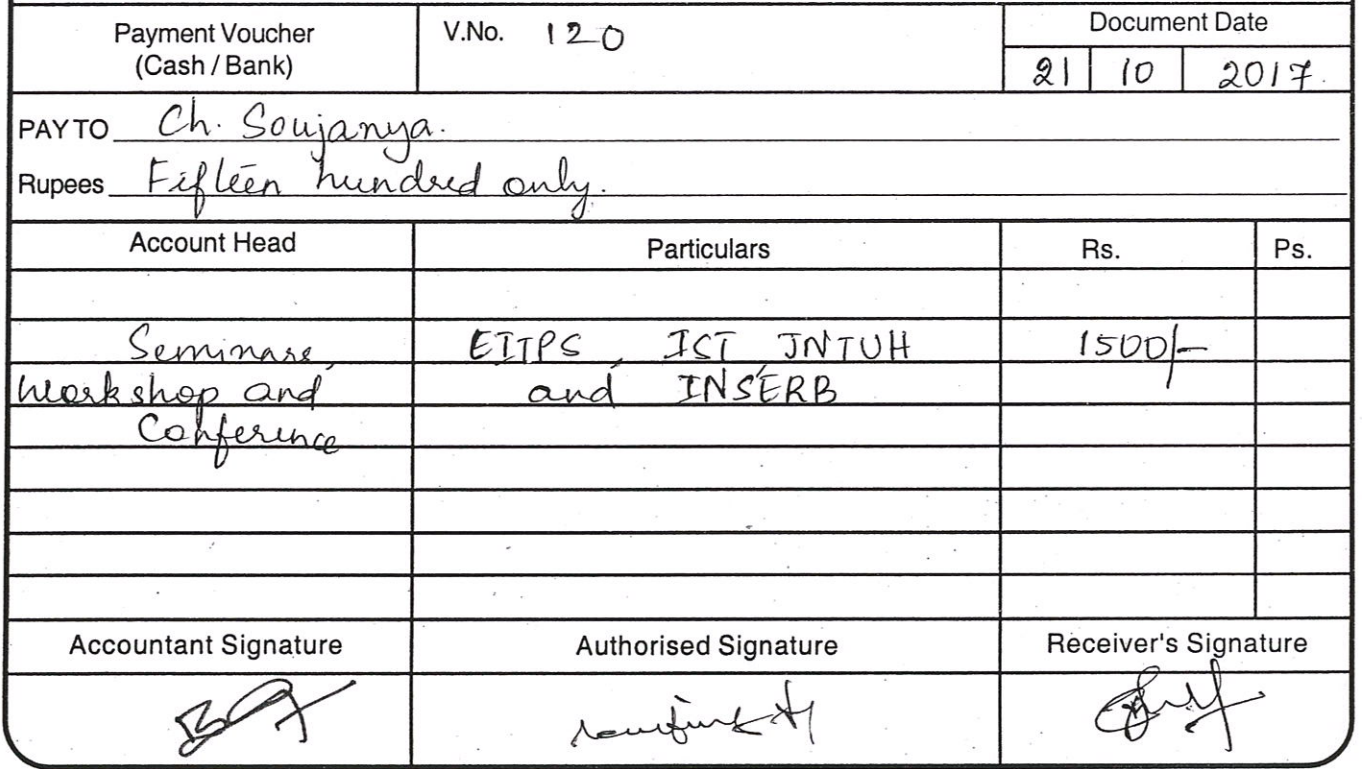 Payment Voucher
(Cash / Bank)
V.No. 120
Document Date
21 10 2017
PAY TO Ch. Soujanya.
Rupees Fifteen hundred only.
Account Head Particulars Rs. Ps.
Seminars, EITPS, IST, JNTUH 1500/-
Workshop and and INSERB
Conference
Accountant Signature Authorised Signature Receiver's Signature